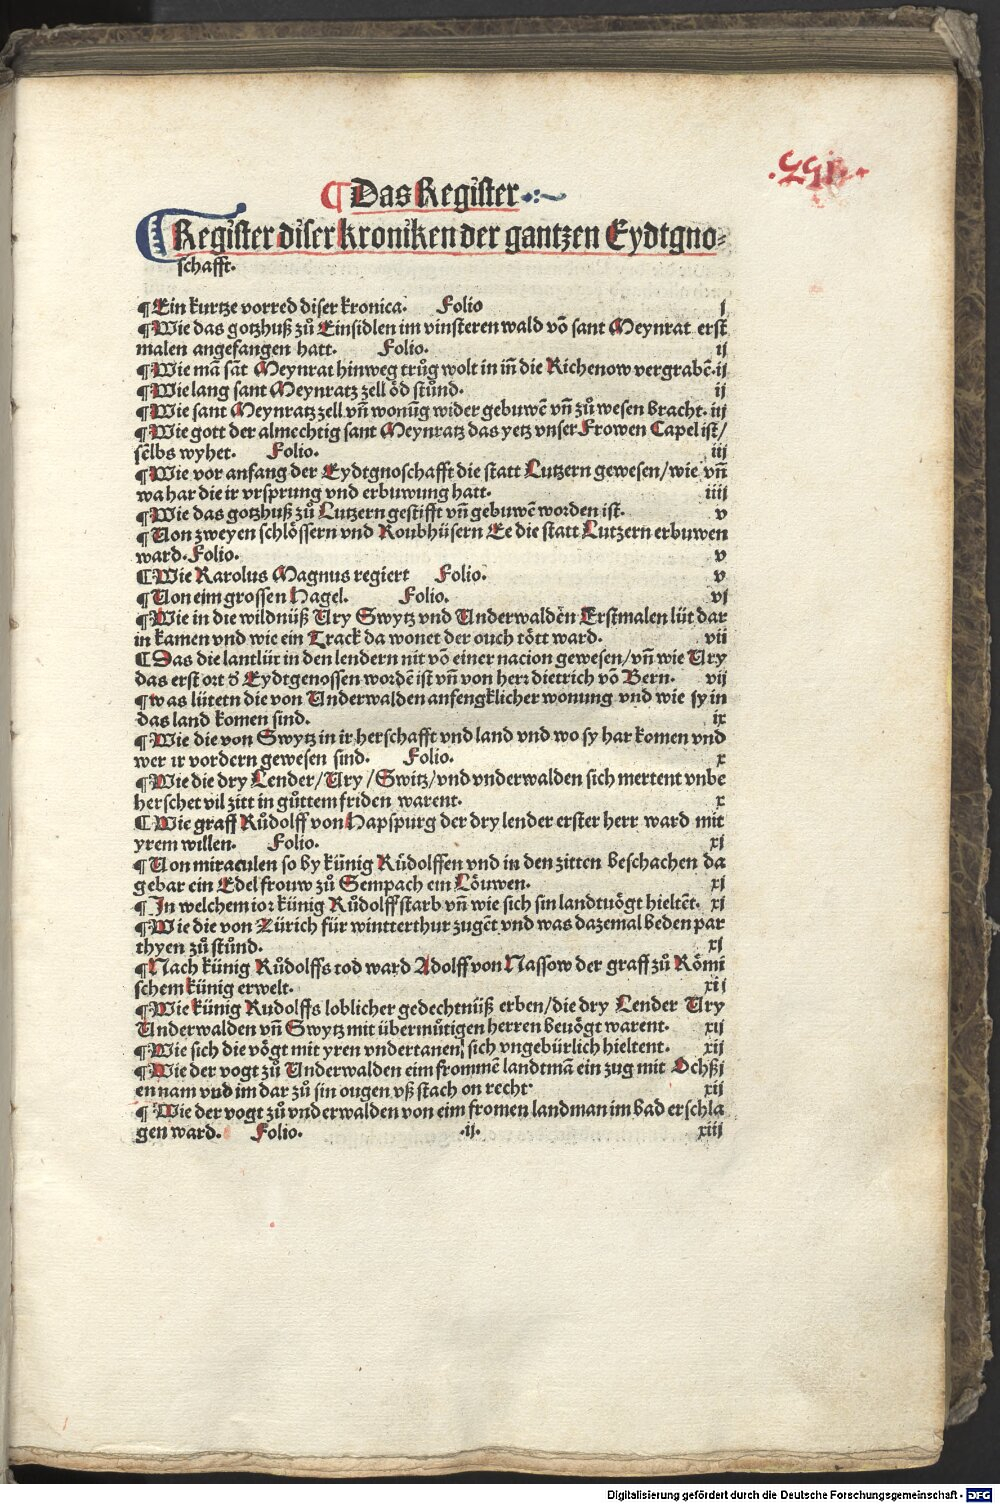 ¶ Das Register
¶ Register diser kroniken der gantzen Eydtgno⸗
schafft.
¶ Ein kurtze vorred diser kronica. Folio j
¶ Wie das gotzhuß zů Einsidlen im vinsteren wald võ sant Meynrat erst
malen angefangen hatt. Folio. ij
¶ Wie mã sãt Meynrat hinweg trůg wolt in iñ die Richenow vergrabẽ. ij
¶ Wie lang sant Meynratz zell öd stůnd. ij
¶ Wie sant Meynratz zell vñ wonũg wider gebuwẽ vñ zů wesen bracht. iij
¶ Wie gott der almechtig sant Meynratz das yetz vnser Frowen Capel ist/
selbs wyhet. Folio. iij
¶ Wie vor anfang der Eydtgnoschafft die statt Lutzern gewesen/wie vñ
wa har die ir vrsprung vnd erbuwung hatt. iiij
¶ Wie das gotzhuß zů Lutzern gestifft vñ gebuwẽ worden ist. v
¶ Von zweyen schlössern vnd Roubhüsern Ee die statt Lutzern erbuwen
ward. Folio. v
¶ Wie Karolus Magnus regiert Folio. v
¶ Von eim grossen Hagel. Folio. vj
¶ Wie in die wildnüß Ury Swytz vnd Underwalden Erstmalen lüt dar
in kamen vnd wie ein Track da wonet der ouch tött ward. vii
¶ Das die lantlüt in den lendern nit võ einer nacion gewesen/vñ wie Ury
das erst ort d̾ Eydtgenossen wordẽ ist vñ von herꝛ dietrich võ Bern. vij
¶ was lütetn die von Underwalden anfengklicher wonung vnd wie sy in
das land komen sind. ix
¶ Wie die von Swytz in ir herschafft vnd land vnd wo sy har komen vnd
wer ir vordern gewesen sind. Folio. x
¶ Wie die dry Lender/Ury/Switz/vnd vnderwalden sich mertent vnbe
herschet vil zitt in gůttem friden warent. x
¶ Wie graff Růdolff von Hapspurg der dry lender erster herr ward mit
yrem willen. Folio. xj
¶ Von miraculen so by künig Růdolffen vnd in den zitten beschachen da
gebar ein Edel frouw zů Sempach ein Löuwen. xj
¶ In welchem ioꝛ künig Růdolff starb vñ wie sich sin landtuögt hieltẽt. xj
¶ Wie die von Zürich für wintterthur zugẽt vnd was dazemal beden par
thyen zů stůnd. xj
¶ Nach künig Růdolffs tod ward Adolff von Nassow der graff zů Römi
schem künig erwelt. xij
¶ Wie künig Rudolffs loblicher gedechtnüß erben/die dry Lender Ury
Underwalden vñ Swytz mit übermůtigen herren beuögt warent. xij
¶ Wie sich die vögt mit yren vndertanen sich vngebürlich hieltent. xij
¶ Wie der vogt zů Underwalden eim frommẽ landtmã ein zug mit Ochßj
en nam vnd im dar zů sin ougen vß stach on recht xij
¶ Wie der vogt zů vnderwalden von eim fromen landman im bad erschla
gen ward. Folio. .ij. xiij
Digitalisierung gefördert durch die Deutsche Forschungsgemeinschaft - DFG